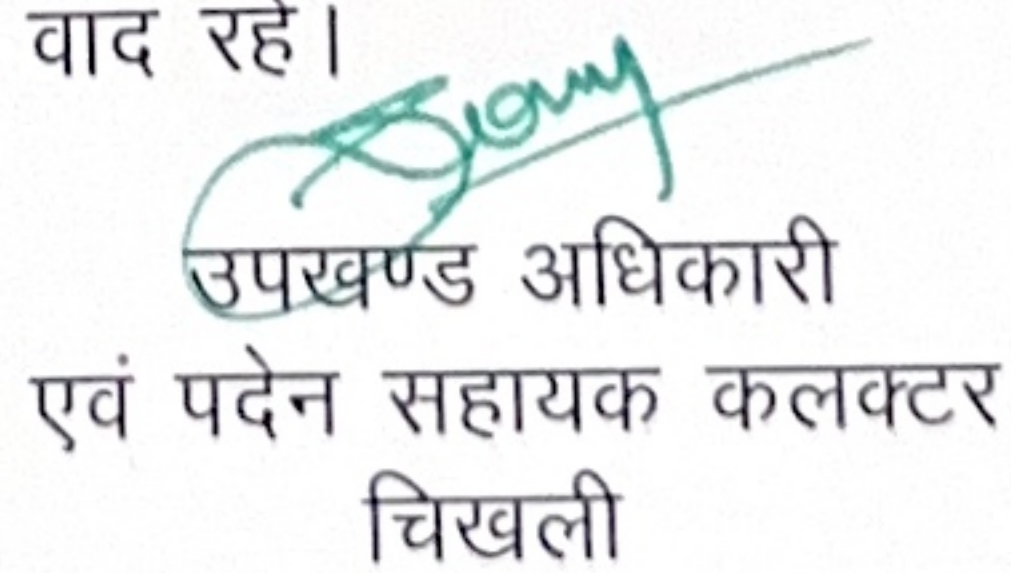 वाद रहे।
उपखण्ड अधिकारी
एवं पदेन सहायक कलक्टर
चिखली